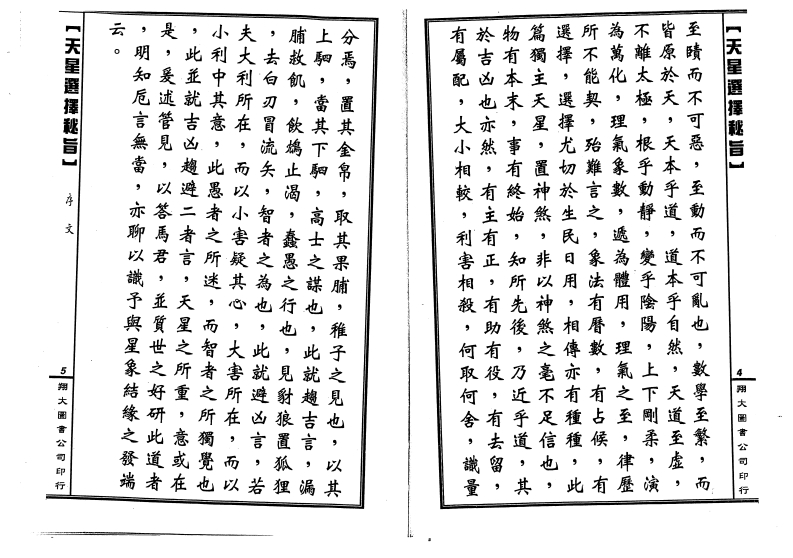 【天星選擇秘旨】
至賾而不可惡，至動而不可亂也，數學至繁，而
皆原於天，天本乎道，道本乎自然，天道至虛，
不離太極，根乎動靜，變乎陰陽，上下剛柔，演
為萬化，理氣象數，遞為體用，理氣之至，律歷
所不能契，殆難言之，象法有曆數，有占候，有
選擇，選擇尤切於生民日用，相傳亦有種種，此
篇獨主天星，置神煞，非以神煞之毫不足信也，
物有本末，事有終始，知所先後，乃近乎道，其
於吉凶也亦然，有主有正，有助有役，有去留，
有屬配，大小相較，利害相殺，何取何舍，識量
4
翔大圖書公司印行
分焉，置其金帛，取其果脯，稚子之見也，以其
上駟，當其下駟，高士之謀也，此就趨吉言，漏
脯救飢，飲鴆止渴，蠢愚之行也，見豺狼置狐狸
，去白刃冒流矢，智者之為也，此就避凶言，若
夫大利所在，而以小害疑其心，大害所在，而以
小利中其意，此愚者之所迷，而智者之所獨覺也
，此並就吉凶趨避二者言，天星之所重，意或在
是，爰述管見，以答馬君，並質世之好研此道者
，明知卮言無當，亦聊以識予與星象結緣之發端
云。
【天星選擇秘旨】
序文
5
翔大圖書公司印行